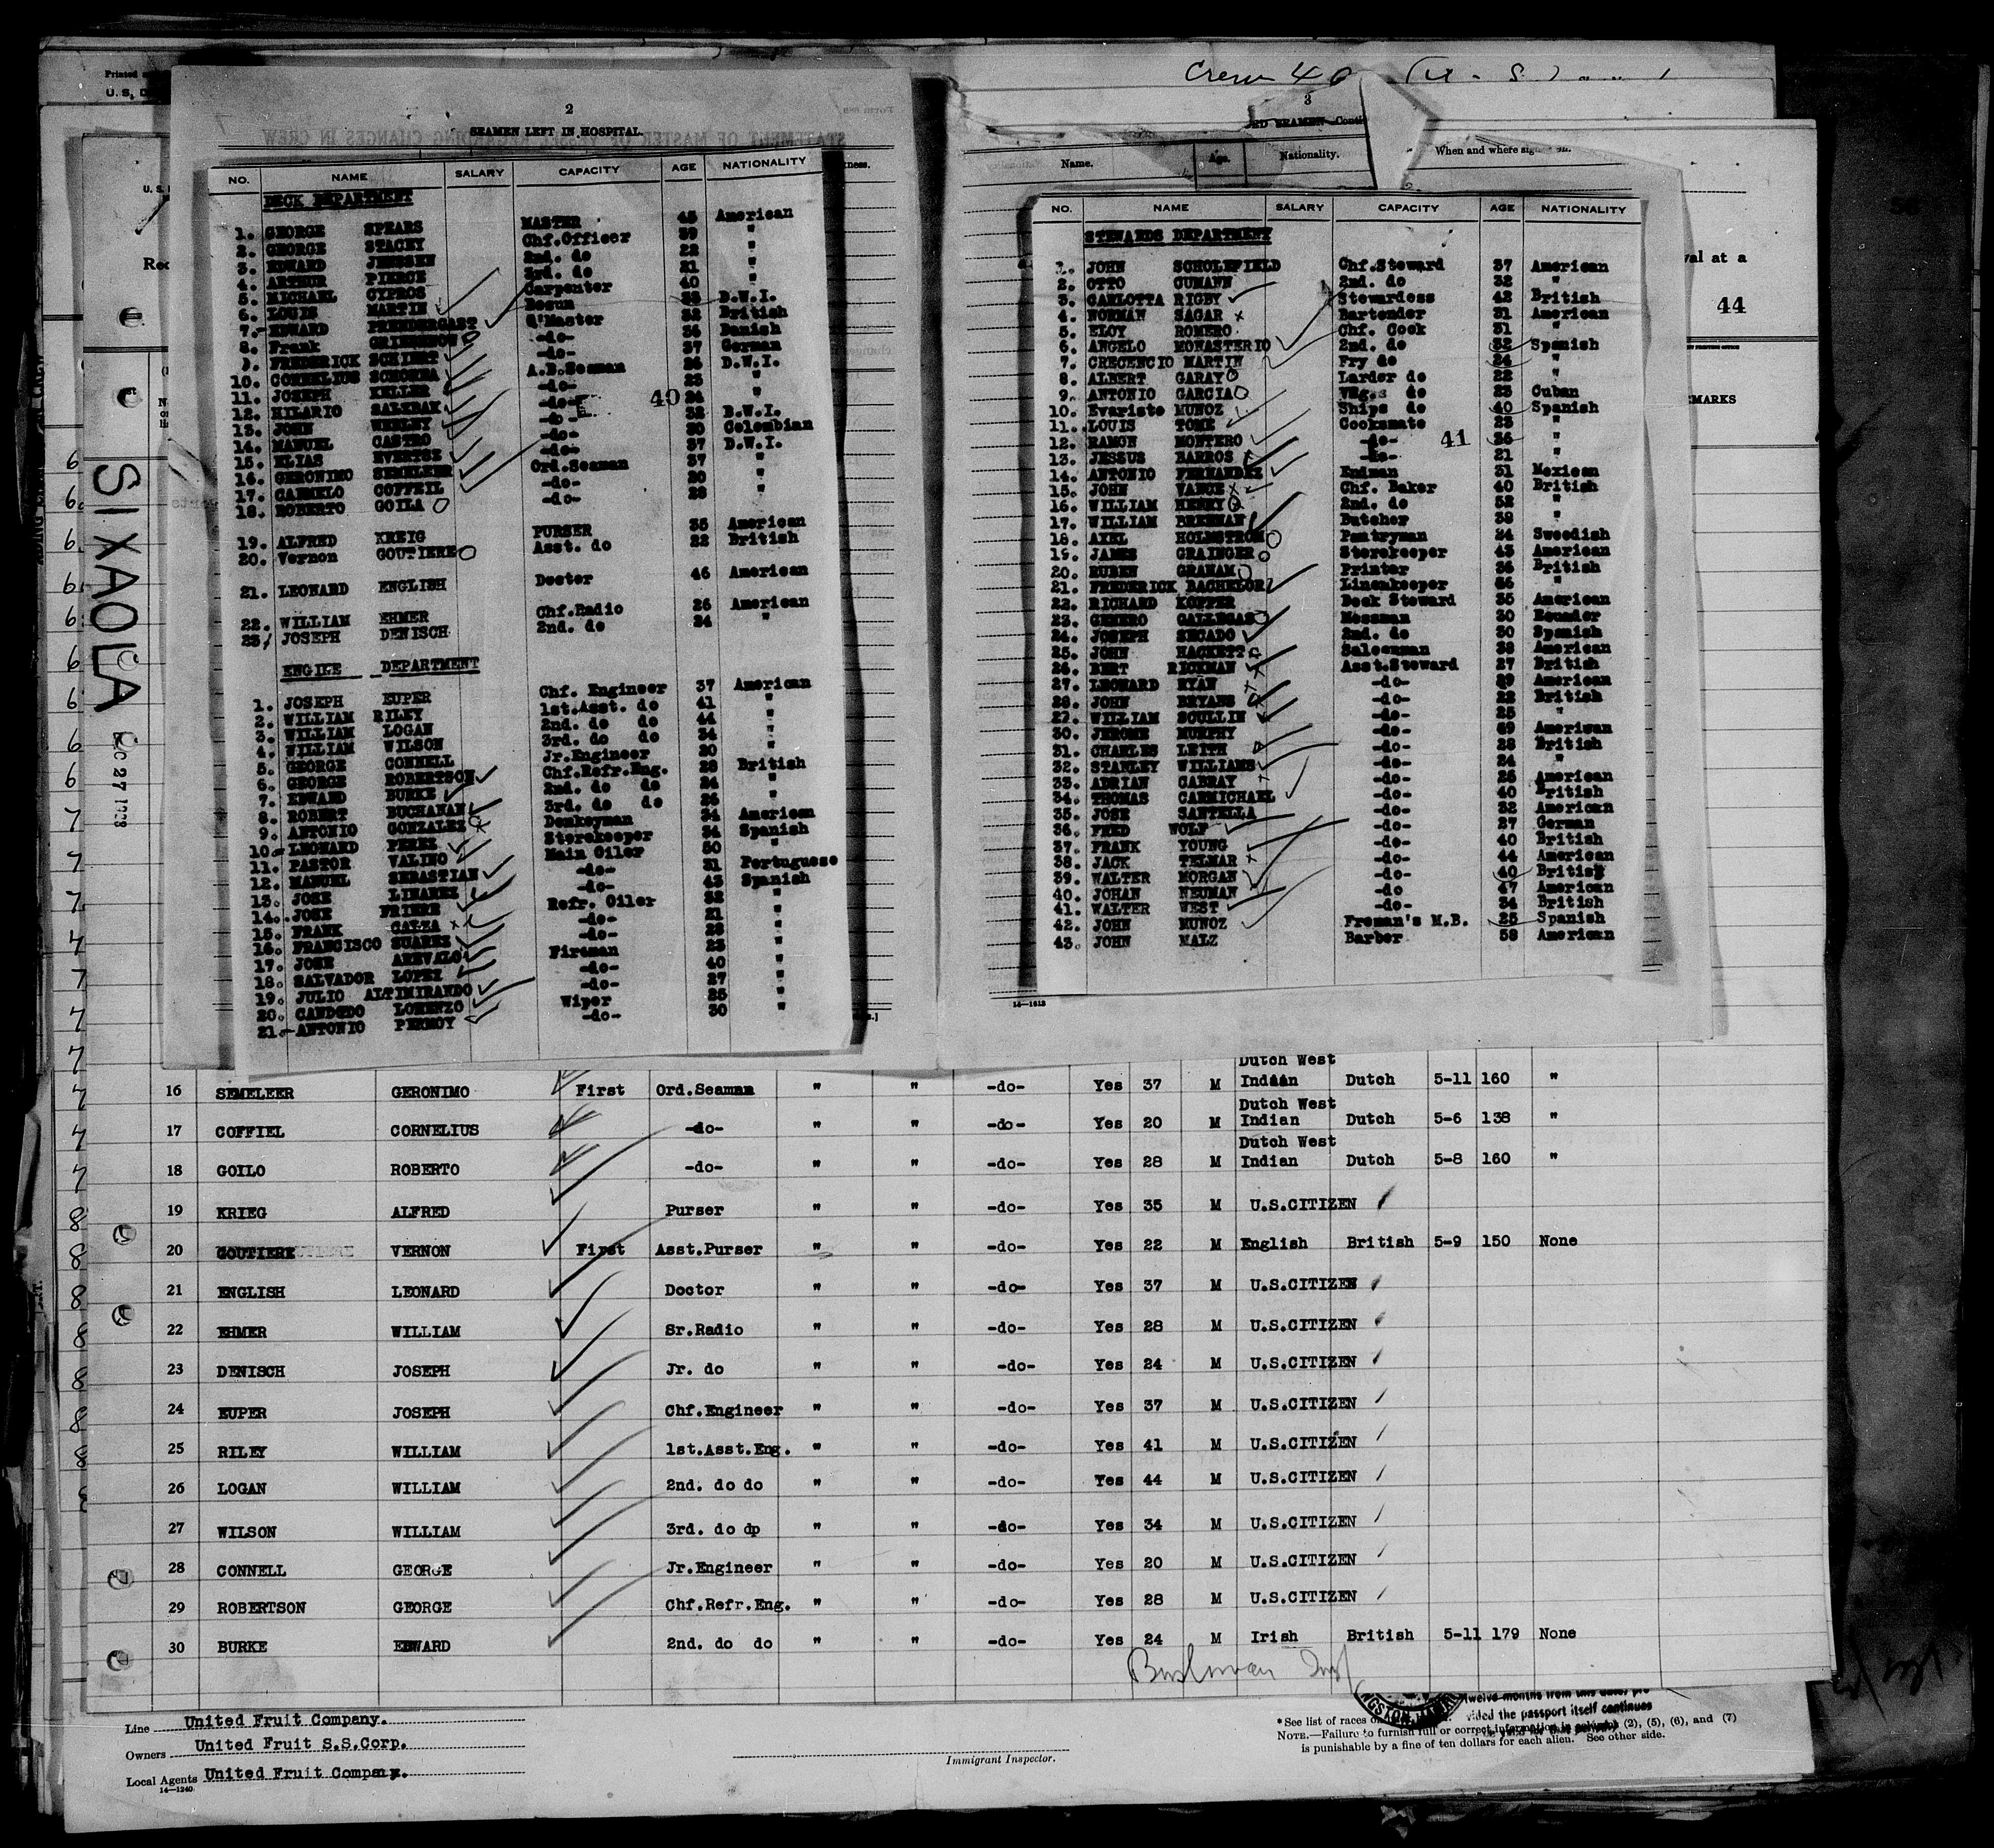 Crew 40 (U.S.)
Printed
U. S. D
2
SEAMEN LEFT IN HOSPITAL.
NO. NAME SALARY CAPACITY AGE NATIONALITY
DECK DEPARTMENT
1. GEORGE SPEARS MASTER 45 American
2. GEORGE STACEY Chf.Officer 39 "
3. EDWARD JENSSEN 2nd. do 22 "
4. ARTHUR PIERCE 3rd. do 21 "
5. MICHAEL CYPROS Carpenter 40 "
6. LOUIS MARTIN Bosun 33 D.W.I.
7. EDWARD PRENDERGAST Q'Master 32 British
8. Frank -do- 36 Danish
9. FREDERICK -do- 37 German
10. CORNELIUS A.B.Seaman 26 D.W.I.
11. JOSEPH KELLER -do- 23 "
12. HILARIO -do- 24 "
13. JOHN WEBLEY -do- 32 B.W.I.
14. MANUEL CASTRO -do- 30 Colombian
15. ELIAS EVERTSZ -do- 37 D.W.I.
16. GERONIMO SEMELEER Ord.Seaman 37 "
17. CARMELO COFFEIL -do- 20 "
18. ROBERTO GOILA -do- 28 "
40
19. ALFRED KREIG PURSER 35 American
20. Vernon GOUTIERE Asst. do 22 British
21. LEONARD ENGLISH Doctor 46 American
22. WILLIAM EHMER Chf.Radio 26 American
23. JOSEPH DENISCH 2nd. do 24 "
ENGINE DEPARTMENT
1. JOSEPH EUPER Chf. Engineer 37 American
2. WILLIAM RILEY 1st.Asst. do 41 "
3. WILLIAM LOGAN 2nd. do do 44 "
4. WILLIAM WILSON 3rd. do do 34 "
5. GEORGE CONNELL Jr.Engineer 20 "
6. GEORGE ROBERTSON Chf.Refr.Eng. 28 British
7. EDWARD BURKE 2nd. do do 24 "
8. ROBERT BUCHANAN 3rd. do do 26 "
9. ANTONIO GONZALEZ Donkeyman 34 American
10. LEONARD PEREZ Storekeeper 34 Spanish
11. PASTOR VALINO Main Oiler 30 "
12. MANUEL SEBASTIAN -do- 31 Portuguese
13. JOSE LINAREZ -do- 43 Spanish
14. JOSE FRIERE Refr. Oiler 32 "
15. FRANK -do- 21 "
16. FRANCISCO SUAREZ -do- 28 "
17. JOSE AREVALO Fireman 23 "
18. SALVADOR LOPEZ -do- 40 "
19. JULIO ALTIMIRANDO -do- 27 "
20. CANDEDO LORENZO Wiper 25 "
21. ANTONIO PERNOY -do- 30 "
3
Name. Age. Nationality. When and where
NO. NAME SALARY CAPACITY AGE NATIONALITY
STEWARDS DEPARTMENT
1. JOHN SCHOLEFIELD Chf.Steward 37 American
2. OTTO GUMANN 2nd. do 32 "
3. CARLOTTA RIGBY Stewardess 42 British
4. NORMAN SAGAR Bartender 31 American
5. ELOY ROMERO Chf. Cook 31 "
6. ANGELO MONASTERIO 2nd. do 32 Spanish
7. CRECENCIO MARTIN Fry do 24 "
8. ALBERT GARAY Larder do 22 "
9. ANTONIO GARCIA Veg. do 23 Cuban
10. Evaristo MUNOZ Ships do 40 Spanish
11. LOUIS TOME Cooksmate 23 "
12. RAMON MONTERO -do- 36 "
41
13. JESSUS BARROS -do- 21 "
14. ANTONIO FERNANDEZ Endman 31 Mexican
15. JOHN VANCE Chf. Baker 40 British
16. WILLIAM HENRY 2nd. do 52 "
17. WILLIAM BRENNAN Butcher 38 "
18. AXEL HOLMSTROM Pantryman 24 Swedish
19. JAMES GRAINGER Storekeeper 43 American
20. RUBEN GRAHAM Printer 36 British
21. FREDERICK BACHELOR Linenkeeper 56 "
22. RICHARD KOFFER Deck Steward 35 American
23. GENERO GALLEGAS Messman 30 Ecuador
24. JOSEPH SECADO 2nd. do 30 Spanish
25. JOHN HACKETT Saloonman 38 American
26. BERT RICKMAN Asst.Steward 27 British
27. LEONARD RYAN -do- 29 American
28. JOHN BRYANS -do- 22 British
29. WILLIAM SCULLIN -do- 25 "
30. JEROME MURPHY -do- 69 American
31. CHARLES LEITH -do- 28 British
32. STANLEY WILLIAMS -do- 24 "
33. ADRIAN GARRAY -do- 25 American
34. THOMAS CARMICHAEL -do- 40 British
35. JOSE SANTELLA -do- 32 American
36. FRED WOLF -do- 27 German
37. FRANK YOUNG -do- 40 British
38. JACK TELMAR -do- 44 American
39. WALTER MORGAN -do- 40 British
40. JOHAN NEUMAN -do 47 American
41. WALTER WEST -do- 34 British
42. JOHN MUNOZ Freman's M.B. 25 Spanish
43. JOHN MALZ Barber 58 American
14—1213
val at a
44
MARKS
SIXAOLA
16 SEMELEER GERONIMO First Ord.Seaman " " -do- Yes 37 M Dutch West Indian Dutch 5-11 160 "
17 COFFIEL CORNELIUS -do- " " -do- Yes 20 M Dutch West Indian Dutch 5-6 138 "
18 GOILO ROBERTO -do- " " -do- Yes 28 M Dutch West Indian Dutch 5-8 160 "
19 KRIEG ALFRED Purser " " -do- Yes 35 M U.S.CITIZEN
20 GOUTIERE VERNON First Asst.Purser " " -do- Yes 22 M English British 5-9 150 None
21 ENGLISH LEONARD Doctor " " -do- Yes 37 M U.S.CITIZEN
22 EHMER WILLIAM Sr.Radio " " -do- Yes 28 M U.S.CITIZEN
23 DENISCH JOSEPH Jr. do " " -do- Yes 24 M U.S.CITIZEN
24 EUPER JOSEPH Chf.Engineer " " -do- Yes 37 M U.S.CITIZEN
25 RILEY WILLIAM 1st.Asst.Eng. " " -do- Yes 41 M U.S.CITIZEN
26 LOGAN WILLIAM 2nd. do do " " -do- Yes 44 M U.S.CITIZEN
27 WILSON WILLIAM 3rd. do dp " " -do- Yes 34 M U.S.CITIZEN
28 CONNELL GEORGE Jr.Engineer " " -do- Yes 20 M U.S.CITIZEN
29 ROBERTSON GEORGE Chf.Refr.Eng. " " -do- Yes 28 M U.S.CITIZEN
30 BURKE EDWARD 2nd. do do " " -do- Yes 24 M Irish British 5-11 179 None
Line United Fruit Company.
Owners United Fruit S.S.Corp.
Local Agents United Fruit Company.
14—1240
Immigrant Inspector.
twelve months from this date, pro
vided the passport itself continues
*See list of races
NOTE.—Failure to furnish full or correct information in (2), (5), (6), and (7)
is punishable by a fine of ten dollars for each alien. See other side.